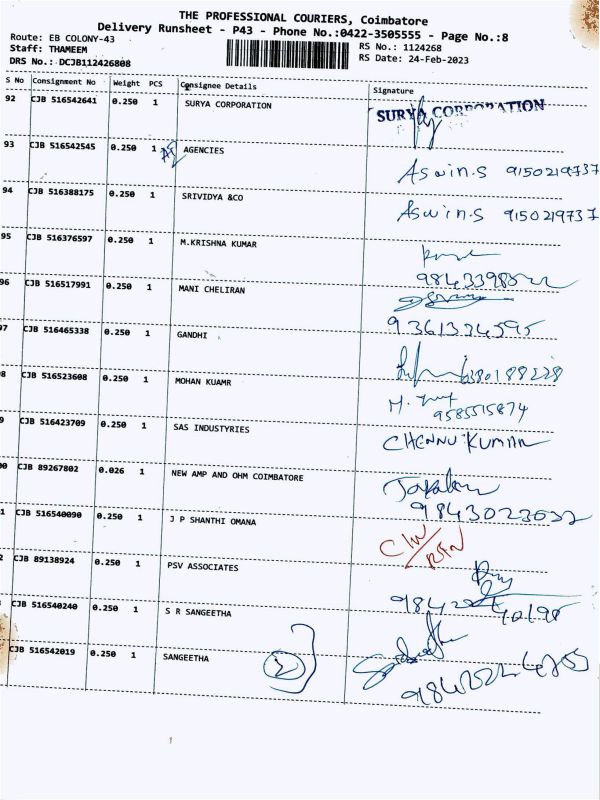 THE PROFESSIONAL COURIERS, Coimbatore
Delivery Runsheet - P43 - Phone No.:0422-3505555 - Page No.:8
Route: EB COLONY-43
Staff: THAMEEM
RS No.: 1124268
DRS No.: DCJB112426808
RS Date: 24-Feb-2023
S No Consignment No Weight PCS Consignee Details Signature
92 CJB 516542641 0.250 1 SURYA CORPORATION SURYA CORPORATION
93 CJB 516542545 0.250 1 AGENCIES Aswin.S 9150219737
94 CJB 516388175 0.250 1 SRIVIDYA &CO Aswin.S 9150219737
95 CJB 516376597 0.250 1 M.KRISHNA KUMAR
96 CJB 516517991 0.250 1 MANI CHELIRAN 9361334595
97 CJB 516465338 0.250 1 GANDHI
8 CJB 516523608 0.250 1 MOHAN KUAMR 9585515874
9 CJB 516423709 0.250 1 SAS INDUSTYRIES CHENNU KUMAR
00 CJB 89267802 0.026 1 NEW AMP AND OHM COIMBATORE 9843023032
1 CJB 516540090 0.250 1 J P SHANTHI OMANA
2 CJB 89138924 0.250 1 PSV ASSOCIATES
CJB 516540240 0.250 1 S R SANGEETHA
CJB 516542019 0.250 1 SANGEETHA 2